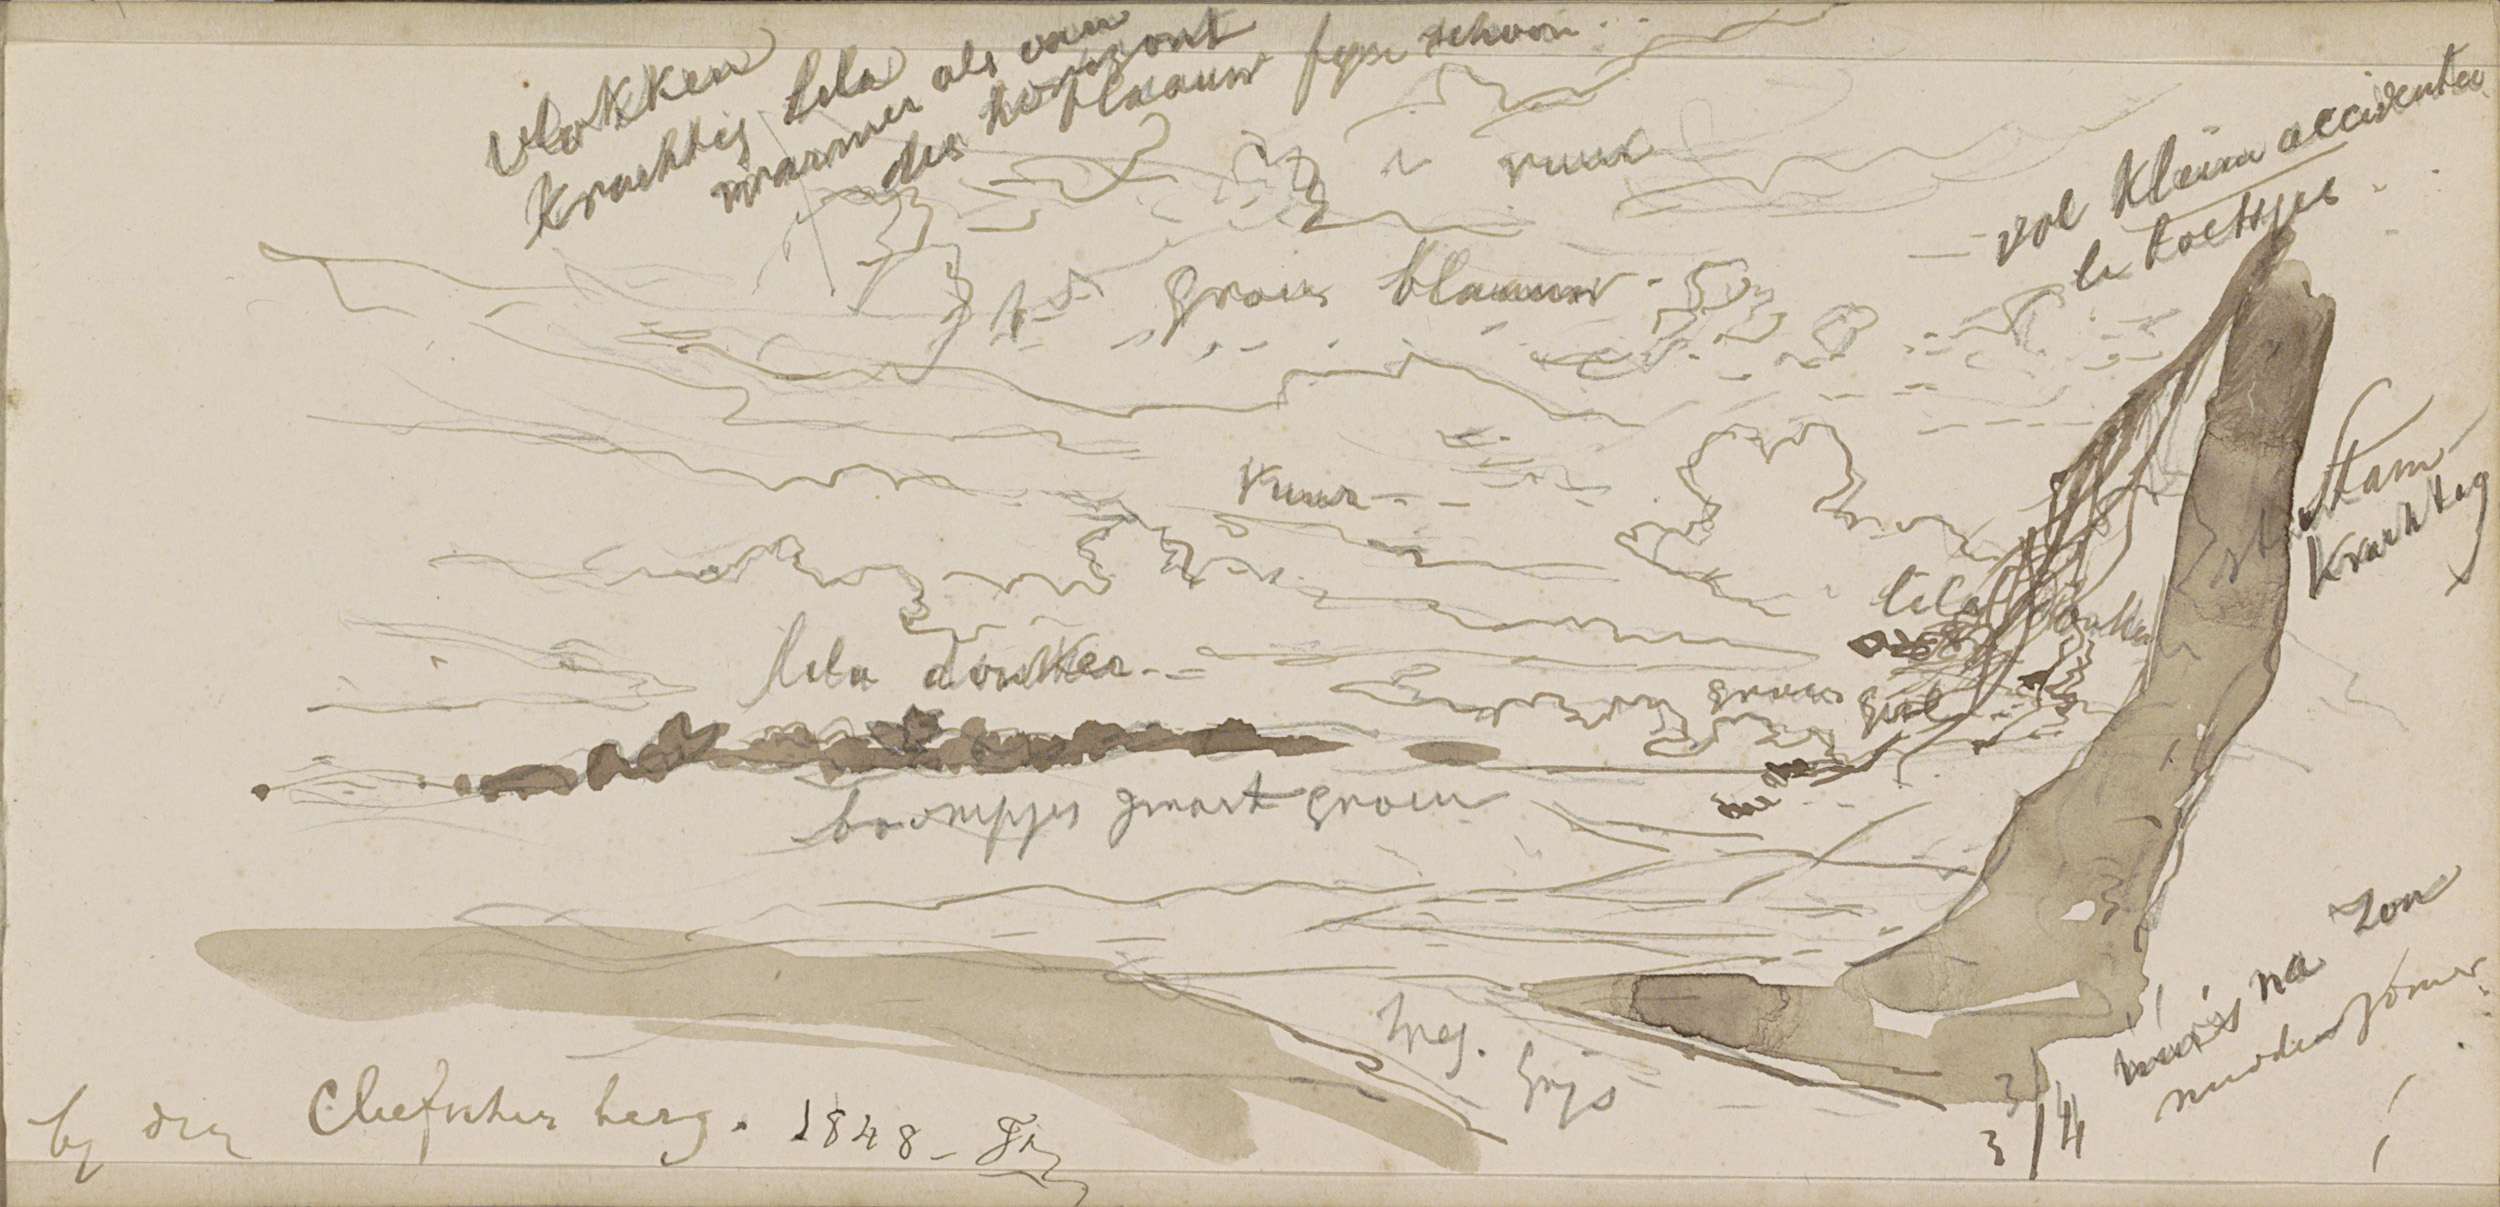 vlokken
krachtig lila
warmer als van
des horizont
blaauw fyn schoon
vuur
vol kleine accidenten
en toetsjes
graus blaauw
vuur
stam
krachtig
lila donker
lila donker
graus geel
boompjes zwart graeu
weg. Grijs
3/4 na zon
by den Cleefschen berg. 1848 -